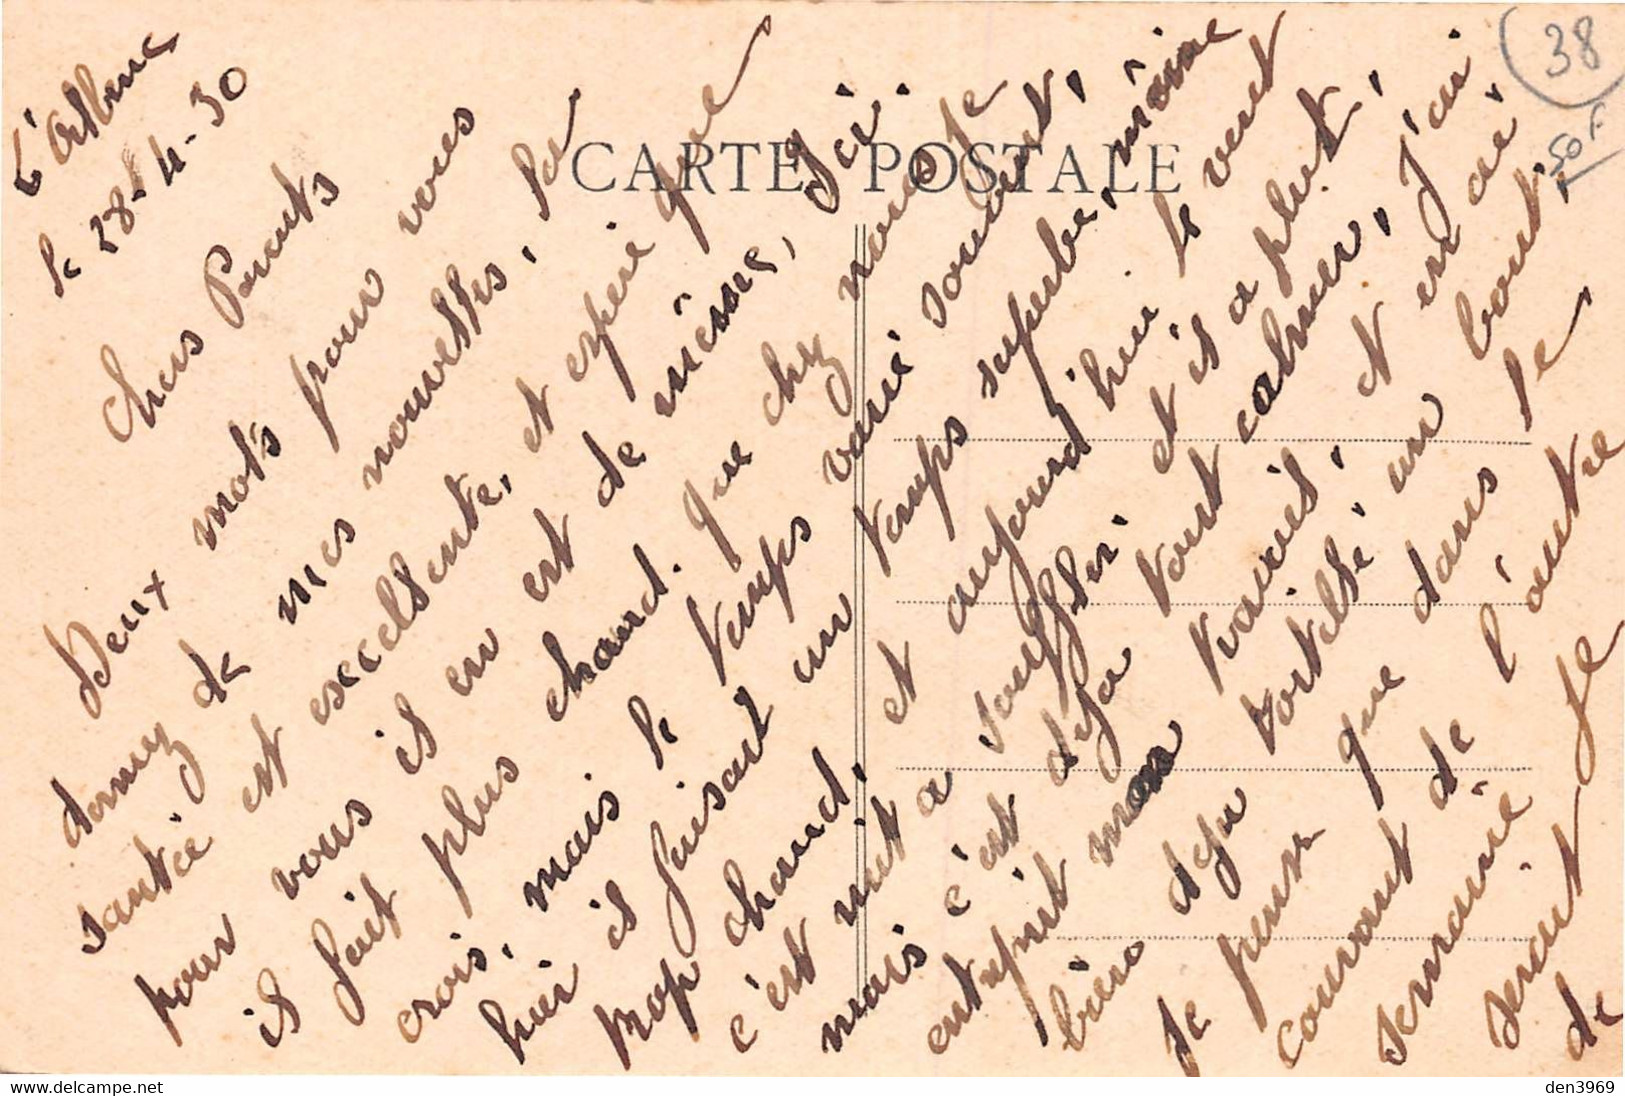 L'Albenc
le 28-4-30
Chers Parents
Deux mots pour vous
donnez de mes nouvelles, la
santée est excellente, et espère que
pour vous il en est de même, Ici.
il fait plus chaud. que chez nous je
crois, mais le temps varié souvent,
hier il faisait un temps superbe, même
trop chaud, et aujourd'hui le vent
c'est mit a souffler et il a plut,
mais c'est deja tout calmer, J'ai
entreprit mon travail, et en ai
bien deja tortillé un bout.
Je pense que dans le
courant de l'autre
semaine je
serait
de
CARTE POSTALE
38
50 F
delcampe.net
den3969